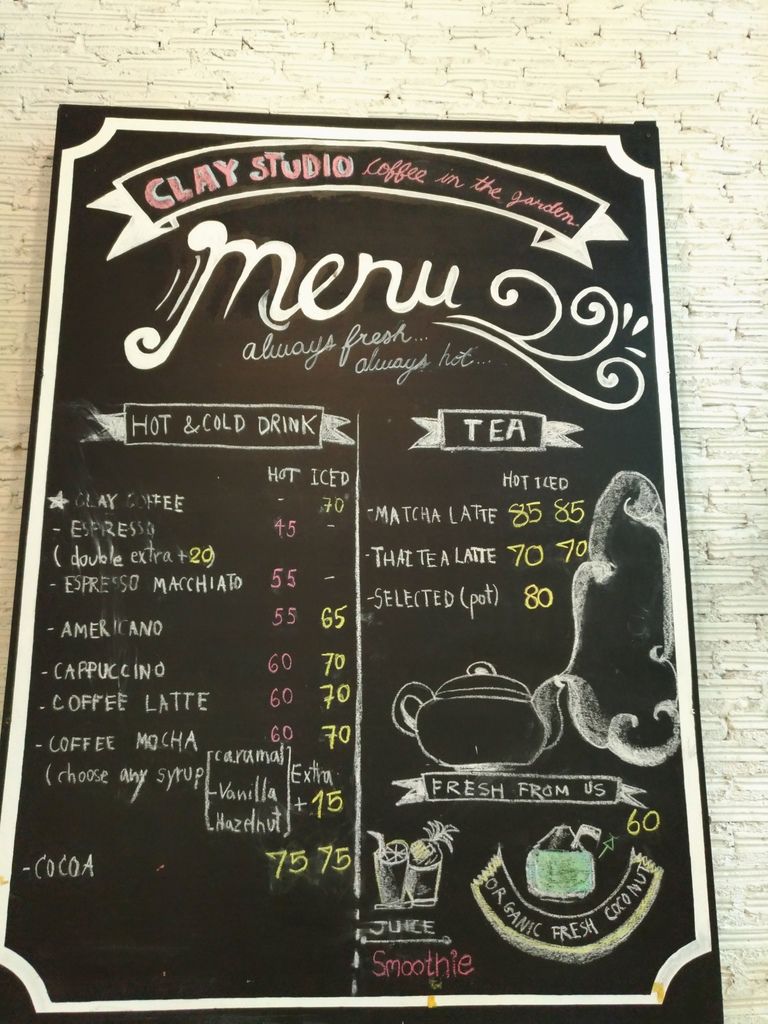 CLAY STUDIO coffee in the garden
menu
always fresh...
always hot...
HOT & COLD DRINK
HOT ICED
CLAY COFFEE - 70
- ESPRESSO 45 -
(double extra +20)
- ESPRESSO MACCHIATO 55 -
- AMERICANO 55 65
- CAPPUCCINO 60 70
- COFFEE LATTE 60 70
- COFFEE MOCHA 60 70
(choose any syrup
caramal
-Vanilla
Hazelnut
Extra
+15
- COCOA 75 75
TEA
HOT ICED
-MATCHA LATTE 85 85
-THAI TEA LATTE 70 70
-SELECTED (pot) 80
FRESH FROM US
60
ORGANIC FRESH COCONUT
JUICE
Smoothie